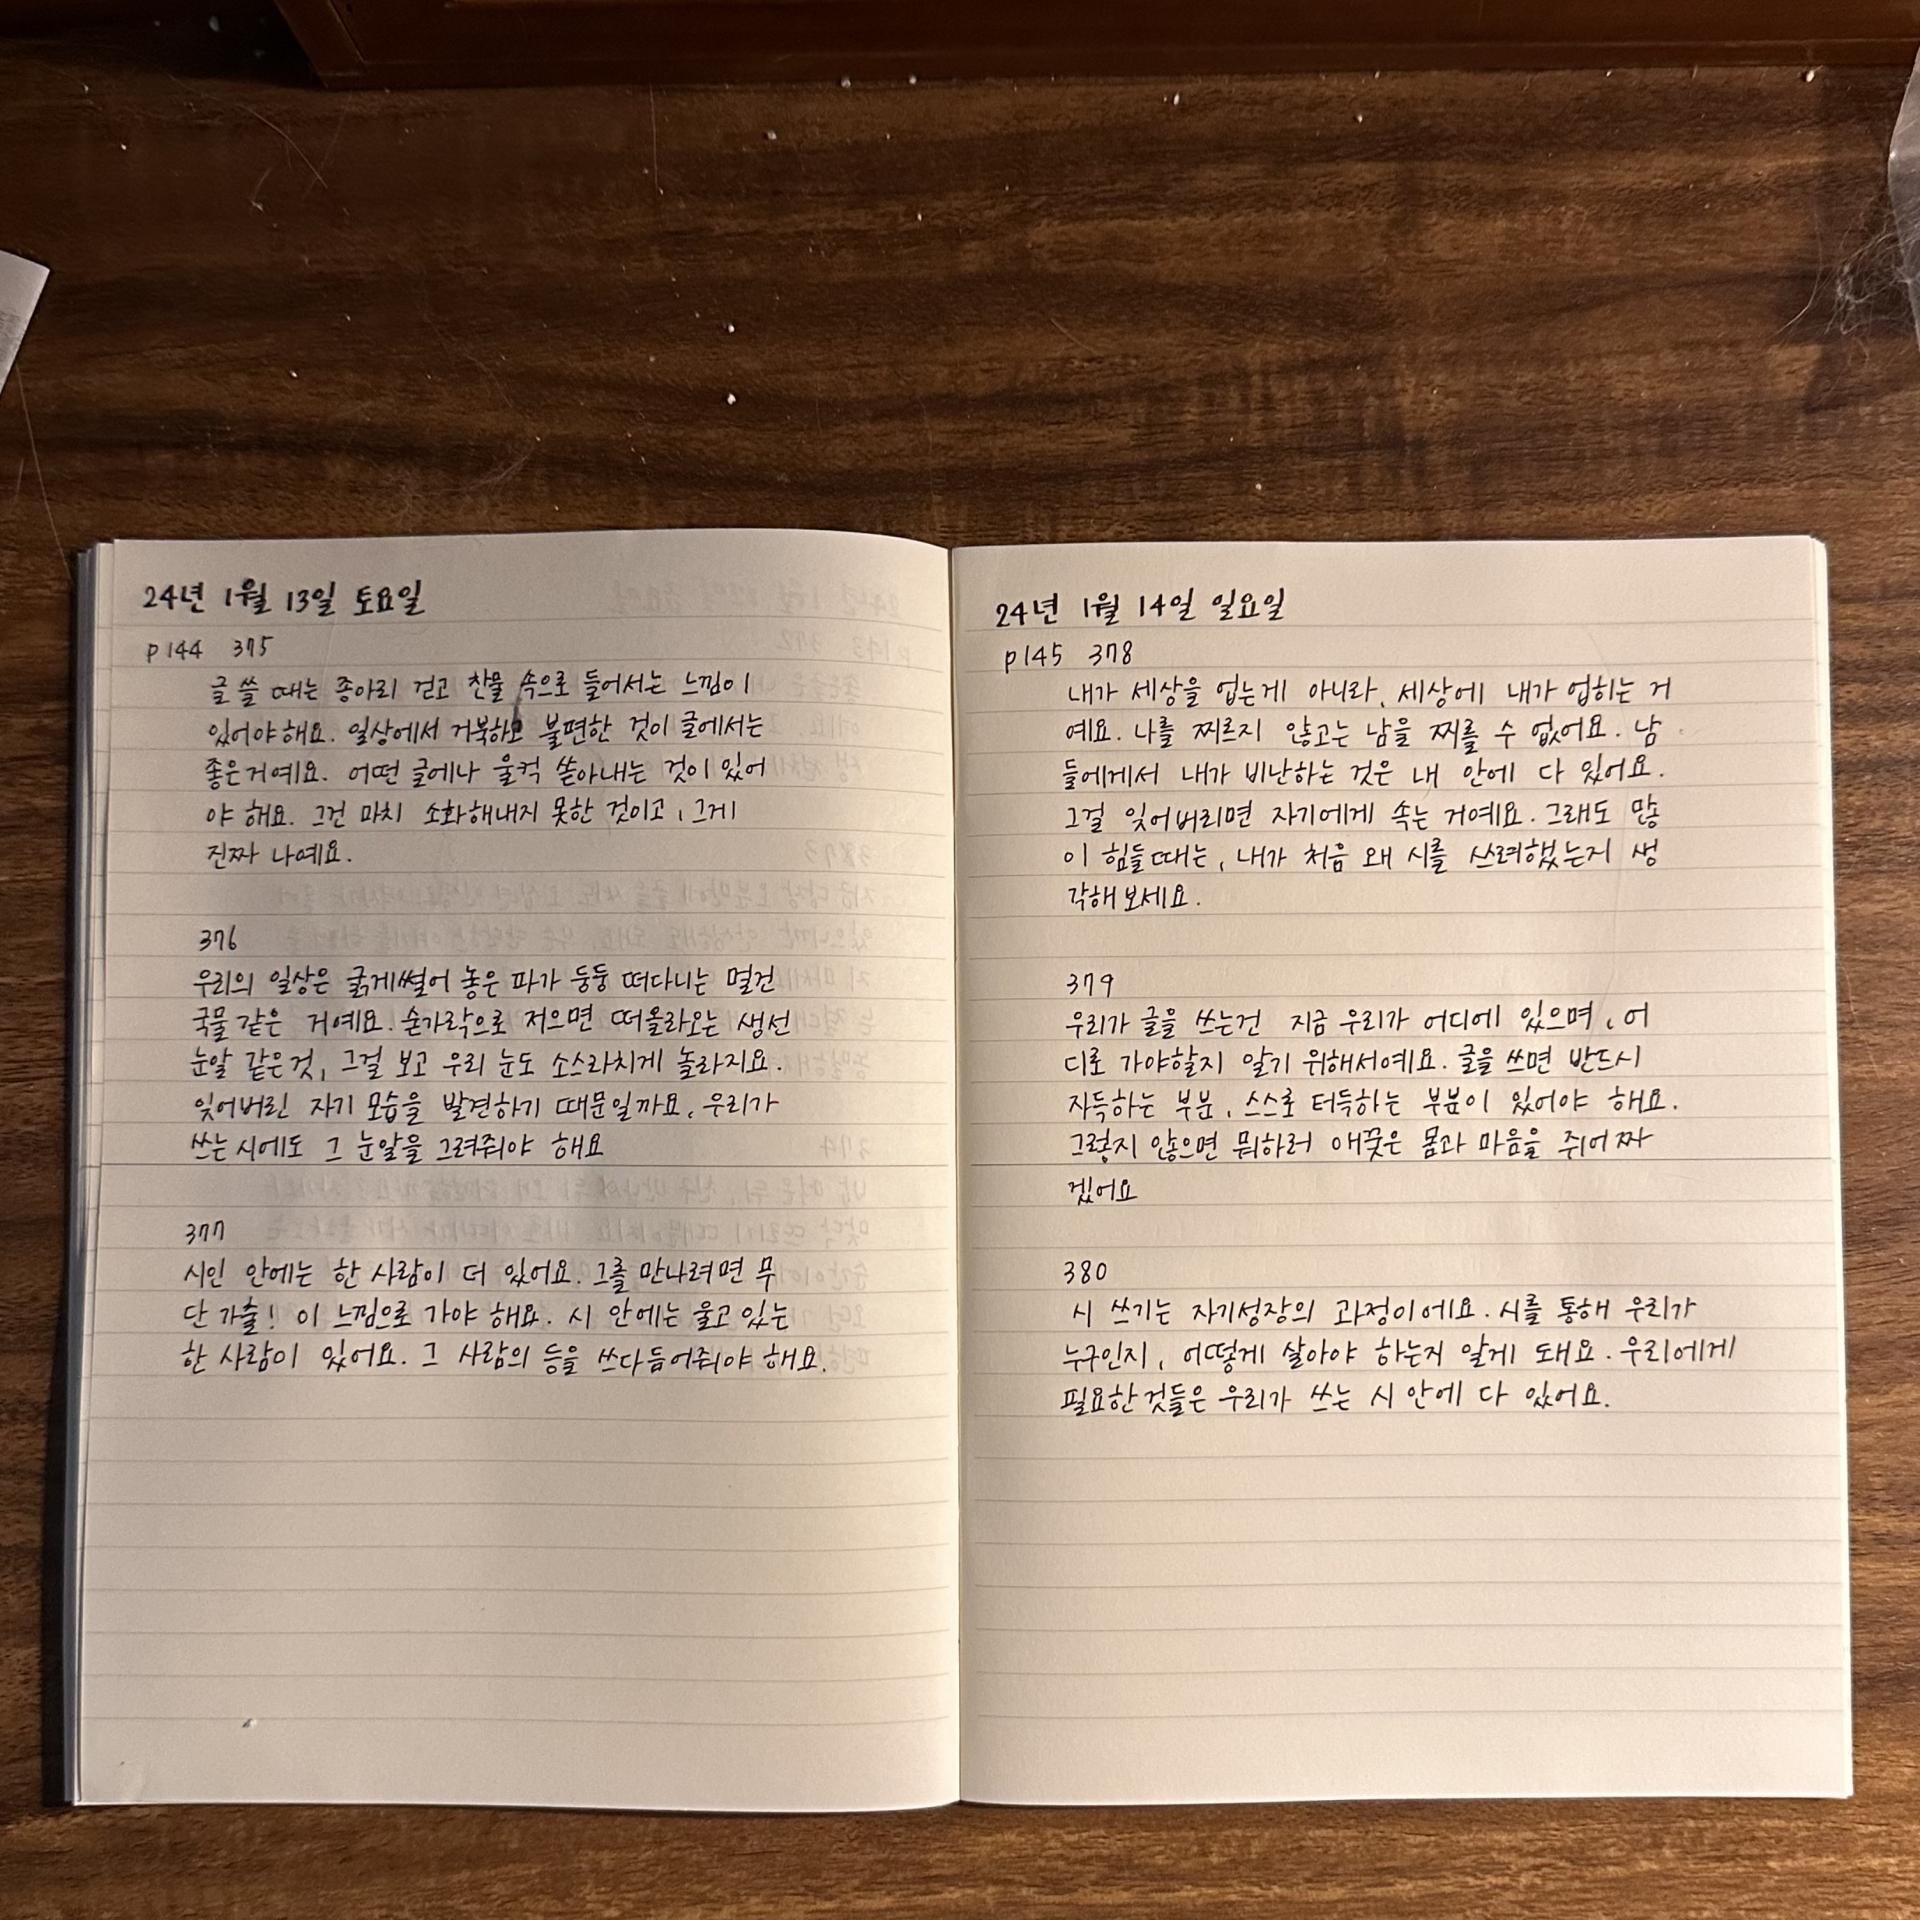 24년 1월 13일 토요일
p144 375
글 쓸 때는 종아리 걷고 찬물 속으로 들어서는 느낌이
있어야 해요. 일상에서 거북하고 불편한 것이 글에서는
좋은거예요. 어떤 글에나 울컥 쏟아내는 것이 있어
야 해요. 그건 마치 소화해내지 못한 것이고, 그게
진짜 나예요.
376
우리의 일상은 굵게썰어 놓은 파가 둥둥 떠다니는 멀건
국물 같은 거예요. 숟가락으로 저으면 떠올라오는 생선
눈알 같은것, 그걸 보고 우리 눈도 소스라치게 놀라지요.
잊어버린 자기 모습을 발견하기 때문일까요. 우리가
쓰는 시에도 그 눈알을 그려줘야 해요
377
시인 안에는 한 사람이 더 있어요. 그를 만나려면 무
단 가출! 이 느낌으로 가야 해요. 시 안에는 울고 있는
한 사람이 있어요. 그 사람의 등을 쓰다듬어줘야 해요.
24년 1월 14일 일요일
p145 378
내가 세상을 업는게 아니라, 세상에 내가 업히는 거
예요. 나를 찌르지 않고는 남을 찌를 수 없어요. 남
들에게서 내가 비난하는 것은 내 안에 다 있어요.
그걸 잊어버리면 자기에게 속는 거예요. 그래도 많
이 힘들때는, 내가 처음 왜 시를 쓰려했는지 생
각해보세요.
379
우리가 글을 쓰는건 지금 우리가 어디에 있으며, 어
디로 가야할지 알기 위해서예요. 글을 쓰면 반드시
자득하는 부분, 스스로 터득하는 부분이 있어야 해요.
그렇지 않으면 뭐하러 애꿎은 몸과 마음을 쥐어짜
겠어요
380
시 쓰기는 자기성장의 과정이에요. 시를 통해 우리가
누구인지, 어떻게 살아야 하는지 알게 돼요. 우리에게
필요한 것들은 우리가 쓰는 시 안에 다 있어요.